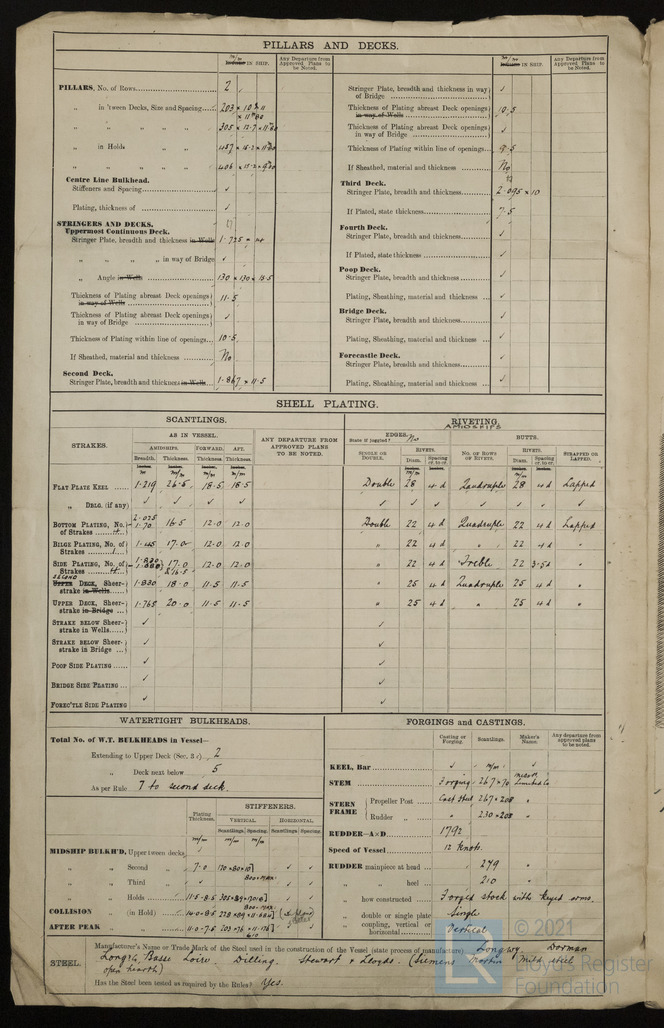 PILLARS AND DECKS.
m/m IN SHIP.
Any Departure from Approved Plans to be Noted.
PILLARS, No. of Rows 2
„ in 'tween Decks, Size and Spacing
„ „ „ „
„ in Holds
„ „ „ „
Centre Line Bulkhead.
Stiffeners and Spacing ✓
Plating, thickness of ✓
STRINGERS AND DECKS.
Uppermost Continuous Deck.
Stringer Plate, breadth and thickness in Wells 1·725 × 14
„ „ „ „ in way of Bridge ✓
„ Angle in Wells 130 × 130 × 15·5
Thickness of Plating abreast Deck openings in way of Wells 11·5
Thickness of Plating abreast Deck openings in way of Bridge ✓
Thickness of Plating within line of openings 10·5
If Sheathed, material and thickness No
Second Deck.
Stringer Plate, breadth and thickness in Wells 1·867 × 11·5
m/m IN SHIP.
Any Departure from Approved Plans to be Noted.
Stringer Plate, breadth and thickness in way of Bridge ✓
Thickness of Plating abreast Deck openings in way of Wells 10·5
Thickness of Plating abreast Deck openings in way of Bridge ✓
Thickness of Plating within line of openings 9·5
If Sheathed, material and thickness No
Third Deck.
Stringer Plate, breadth and thickness 2·095 × 10
If Plated, state thickness 7·5
Fourth Deck.
Stringer Plate, breadth and thickness ✓
If Plated, state thickness ✓
Poop Deck.
Stringer Plate, breadth and thickness ✓
Plating, Sheathing, material and thickness ✓
Bridge Deck.
Stringer Plate, breadth and thickness ✓
Plating, Sheathing, material and thickness ✓
Forecastle Deck.
Stringer Plate, breadth and thickness ✓
Plating, Sheathing, material and thickness ✓
SHELL PLATING.
SCANTLINGS.
RIVETING
AMIDSHIPS
STRAKES.
AS IN VESSEL.
AMIDSHIPS. FORWARD. AFT.
Breadth. Thickness. Thickness. Thickness.
ANY DEPARTURE FROM APPROVED PLANS TO BE NOTED.
EDGES.
State if joggled? No
SINGLE OR DOUBLE.
RIVETS.
Diam. Spacing cr. to cr.
BUTTS.
No. OF ROWS OF RIVETS.
RIVETS.
Diam. Spacing cr. to cr.
STRAPPED OR LAPPED.
FLAT PLATE KEEL 1·219 26·5 18·5 18·5 Double 28 4 d Quadruple 28 4 d Lapped
„ DBLG. (if any) ✓ ✓ ✓ ✓ ✓ ✓ ✓ ✓ ✓ ✓ ✓
BOTTOM PLATING, No. of Strakes 2·075 1·70 16·5 12·0 12·0 Double 22 4 d Quadruple 22 4 d Lapped
BILGE PLATING, No. of Strakes 1·45 17·0 12·0 12·0 „ 22 4 d „ 22 4 d „
SIDE PLATING, No. of Strakes 1·830 17·0 & 16·5 12·0 12·0 „ 22 4 d Treble 22 3·5d „
SECOND UPPER DECK, Sheerstrake in Wells 1·830 18·0 11·5 11·5 „ 25 4 d Quadruple 25 4 d „
UPPER DECK, Sheerstrake in Bridge 1·765 20·0 11·5 11·5 „ 25 4 d „ 25 4 d „
STRAKE BELOW Sheerstrake in Wells ✓ ✓
STRAKE BELOW Sheerstrake in Bridge ✓ ✓
POOP SIDE PLATING ✓ ✓
BRIDGE SIDE PLATING ✓ ✓
FOREC'TLE SIDE PLATING ✓ ✓
WATERTIGHT BULKHEADS.
Total No. of W.T. BULKHEADS in Vessel—
Extending to Upper Deck (Sec. 3 c) 2
„ Deck next below 5
As per Rule 7 to second deck.
Plating Thickness.
STIFFENERS.
VERTICAL HORIZONTAL
Scantlings. Spacing. Scantlings. Spacing.
MIDSHIP BULKH'D, Upper tween decks ✓
„ „ Second „ 7·0
„ „ Third „ ✓
„ „ Holds 11·5-8·5
COLLISION „ (in Hold)
AFTER PEAK „
FORGINGS and CASTINGS.
Casting or Forging. Scantlings. Maker's Name. Any departure from approved plans to be noted.
KEEL, Bar ✓ m/m ✓
STEM Forging 267 × 70
STERN FRAME
Propeller Post Cast Steel 267 × 208 „
Rudder „ „ 230 × 208 „
RUDDER—A×D 1792
Speed of Vessel 12 knots.
RUDDER mainpiece at head 279
„ „ heel 210
„ how constructed Forged stock with keyed arms.
„ double or single plate Single
„ coupling, vertical or horizontal Vertical
STEEL.
Manufacturer's Name or Trade Mark of the Steel used in the construction of the Vessel (state process of manufacture). Longwy, Dorman
Long & Co, Basse Loire, Dilling, Stewart & Lloyds. (Siemens Martin Mild steel
open hearth)
Has the Steel been tested as required by the Rules? Yes.
© 2021
Lloyd's Register
Foundation
LR